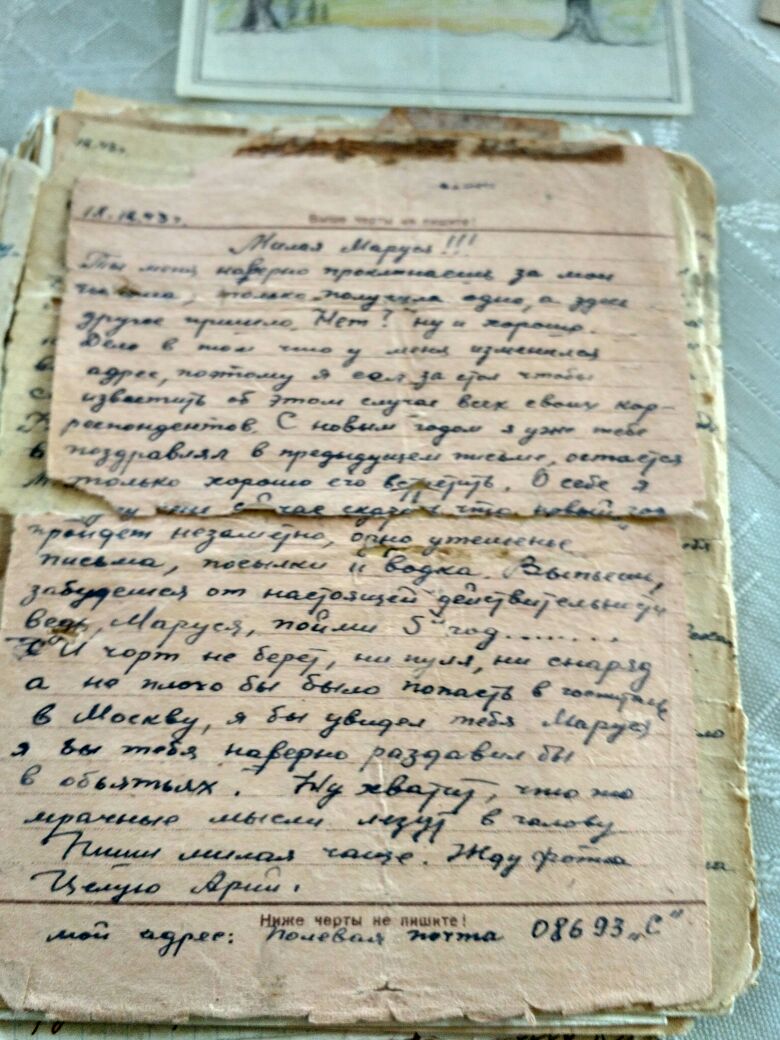 18.12.43г.
Выше черты не пишите!
Милая Маруся!!!
Ты меня наверно проклинаешь за мои
письма, только получила одно, а здесь
другое пришло. Нет? ну и хорошо.
Дело в том что у меня изменился
адрес, поэтому я сел за стол чтобы
известить об этом случае всех своих кор-
респондентов. С новым годом я уже тебе
поздравлял в предыдущем письме, остается
только хорошо его встретить. О себе я
сейчас скажу что новый год
пройдет незаметно, одно утешенье
письма, посылки и водка. Выпьешь,
забудешся от настоящей действительности
ведь, Маруся, пойми 5й год........
И чорт не берет, ни пуля, ни снаряд
а не плохо бы было попасть в госпиталь
в Москву, я бы увидел тебя Маруся
я бы тебя наверно раздавил бы
в обьятьях. Ну хватит, что то
мрачные мысли лезут в голову
Пиши милая чаще. Жду фотки
Целую Арий.
Ниже черты не пишите!
мой адрес: полевая почта 08693 „С"